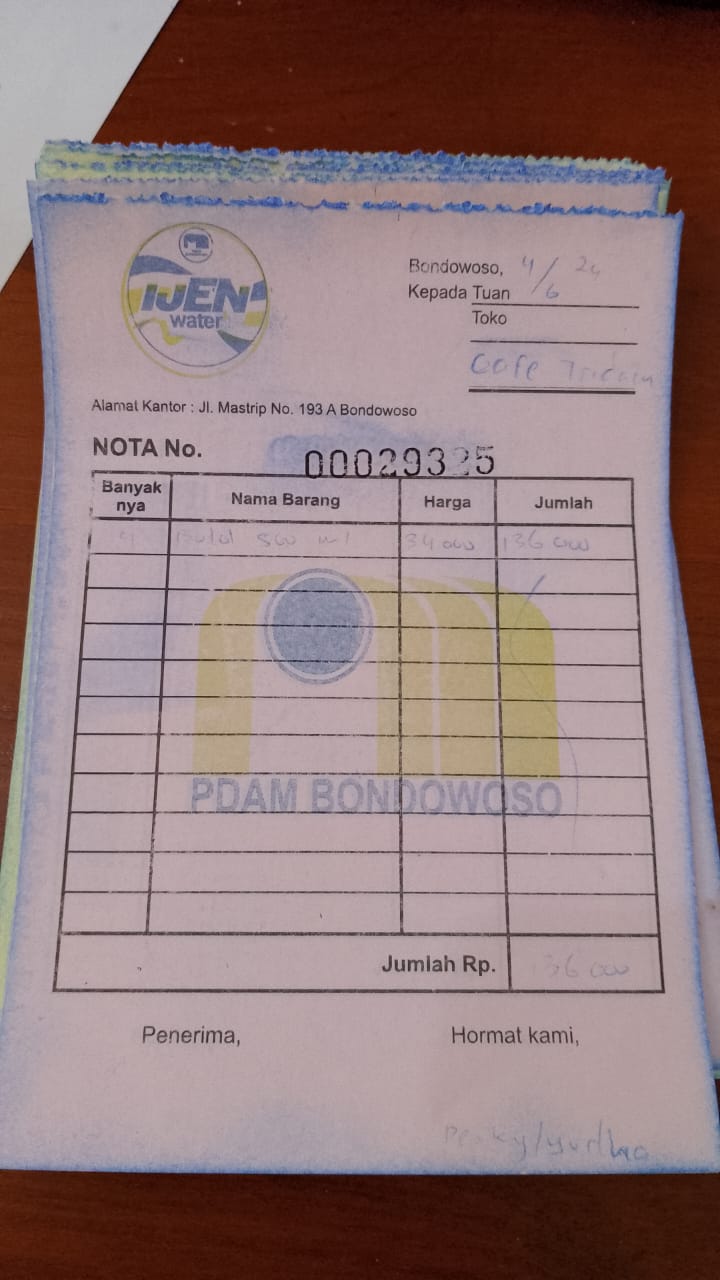 IJEN
water
Bondowoso, 4/6 24
Kepada Tuan
Toko
Cafe
Alamat Kantor : Jl. Mastrip No. 193 A Bondowoso
NOTA No. 00029325
Banyak nya Nama Barang Harga Jumlah
4 Botol 500 ml 34 000 136 000
PDAM BONDOWOSO
Jumlah Rp. 136 000
Penerima, Hormat kami,